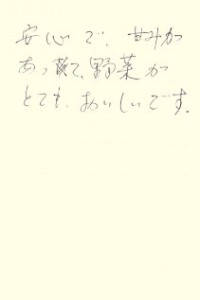 安心で、甘みが
あって、野菜が
とても、おいしいです。